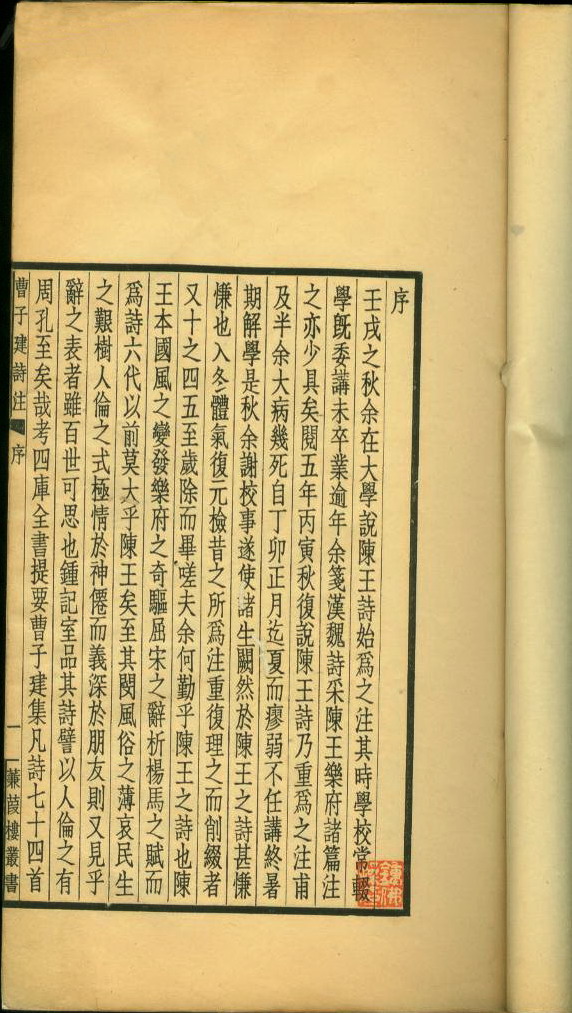 序
壬戌之秋余在大學說陳王詩始爲之注其時學校常輟
學旣委講未卒業逾年余箋漢魏詩采陳王樂府諸篇注
之亦少具矣閱五年丙寅秋復說陳王詩乃重爲之注甫
及半余大病幾死自丁卯正月迄夏而瘳弱不任講終暑
期解學是秋余謝校事遂使諸生闕然於陳王之詩甚慊
慊也入冬體氣復元檢昔之所爲注重復理之而削綴者
又十之四五至歲除而畢嗟夫余何勤乎陳王之詩也陳
王本國風之變發樂府之奇驅屈宋之辭析楊馬之賦而
爲詩六代以前莫大乎陳王矣至其閔風俗之薄哀民生
之艱樹人倫之式極情於神僊而義深於朋友則又見乎
辭之表者雖百世可思也鍾記室品其詩譬以人倫之有
周孔至矣哉考四庫全書提要曹子建集凡詩七十四首
曹子建詩注 序 一 蒹葭樓叢書